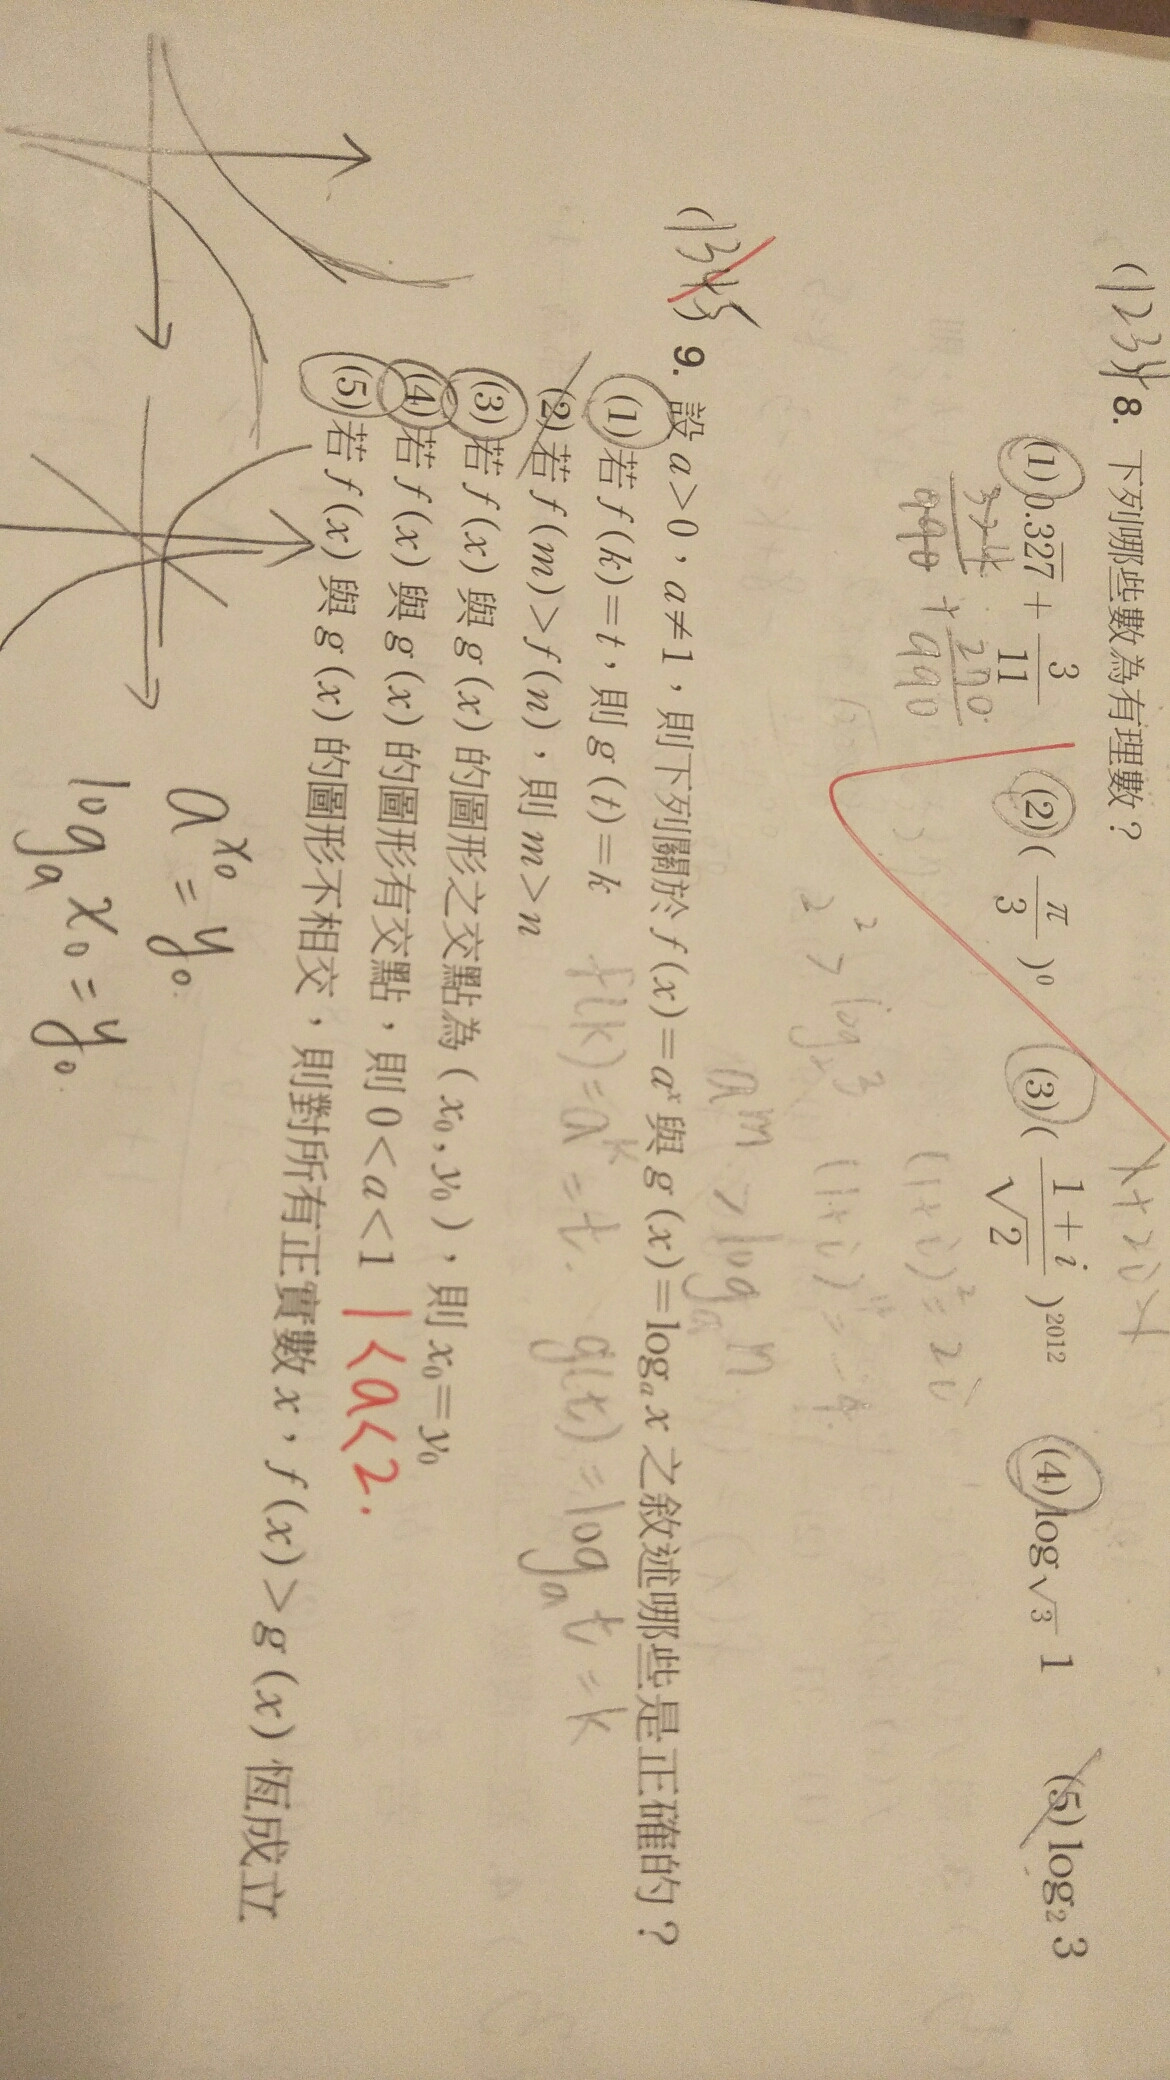 (1234) 8. 下列哪些數為有理數?
(1) 0.327 + 3/11 (2) (π/3)⁰ (3) ((1+i)/√2)²⁰¹² (4) log√3 1 (5) log₂ 3
(1+i)² = 2i
2² > log₂3
aᵐ > logₐ n
(1345) 9. 設 a>0,a≠1,則下列關於 f(x)=aˣ 與 g(x)=logₐ x 之敘述哪些是正確的?
(1) 若 f(k)=t,則 g(t)=k
f(k)=aᵏ=t. g(t)=logₐ t=k
(2) 若 f(m)>f(n),則 m>n
(3) 若 f(x) 與 g(x) 的圖形之交點為 (x₀, y₀),則 x₀=y₀
(4) 若 f(x) 與 g(x) 的圖形有交點,則 0<a<1 1<a<2.
(5) 若 f(x) 與 g(x) 的圖形不相交,則對所有正實數 x,f(x)>g(x) 恆成立
aˣ⁰ = y₀.
logₐ x₀ = y₀.